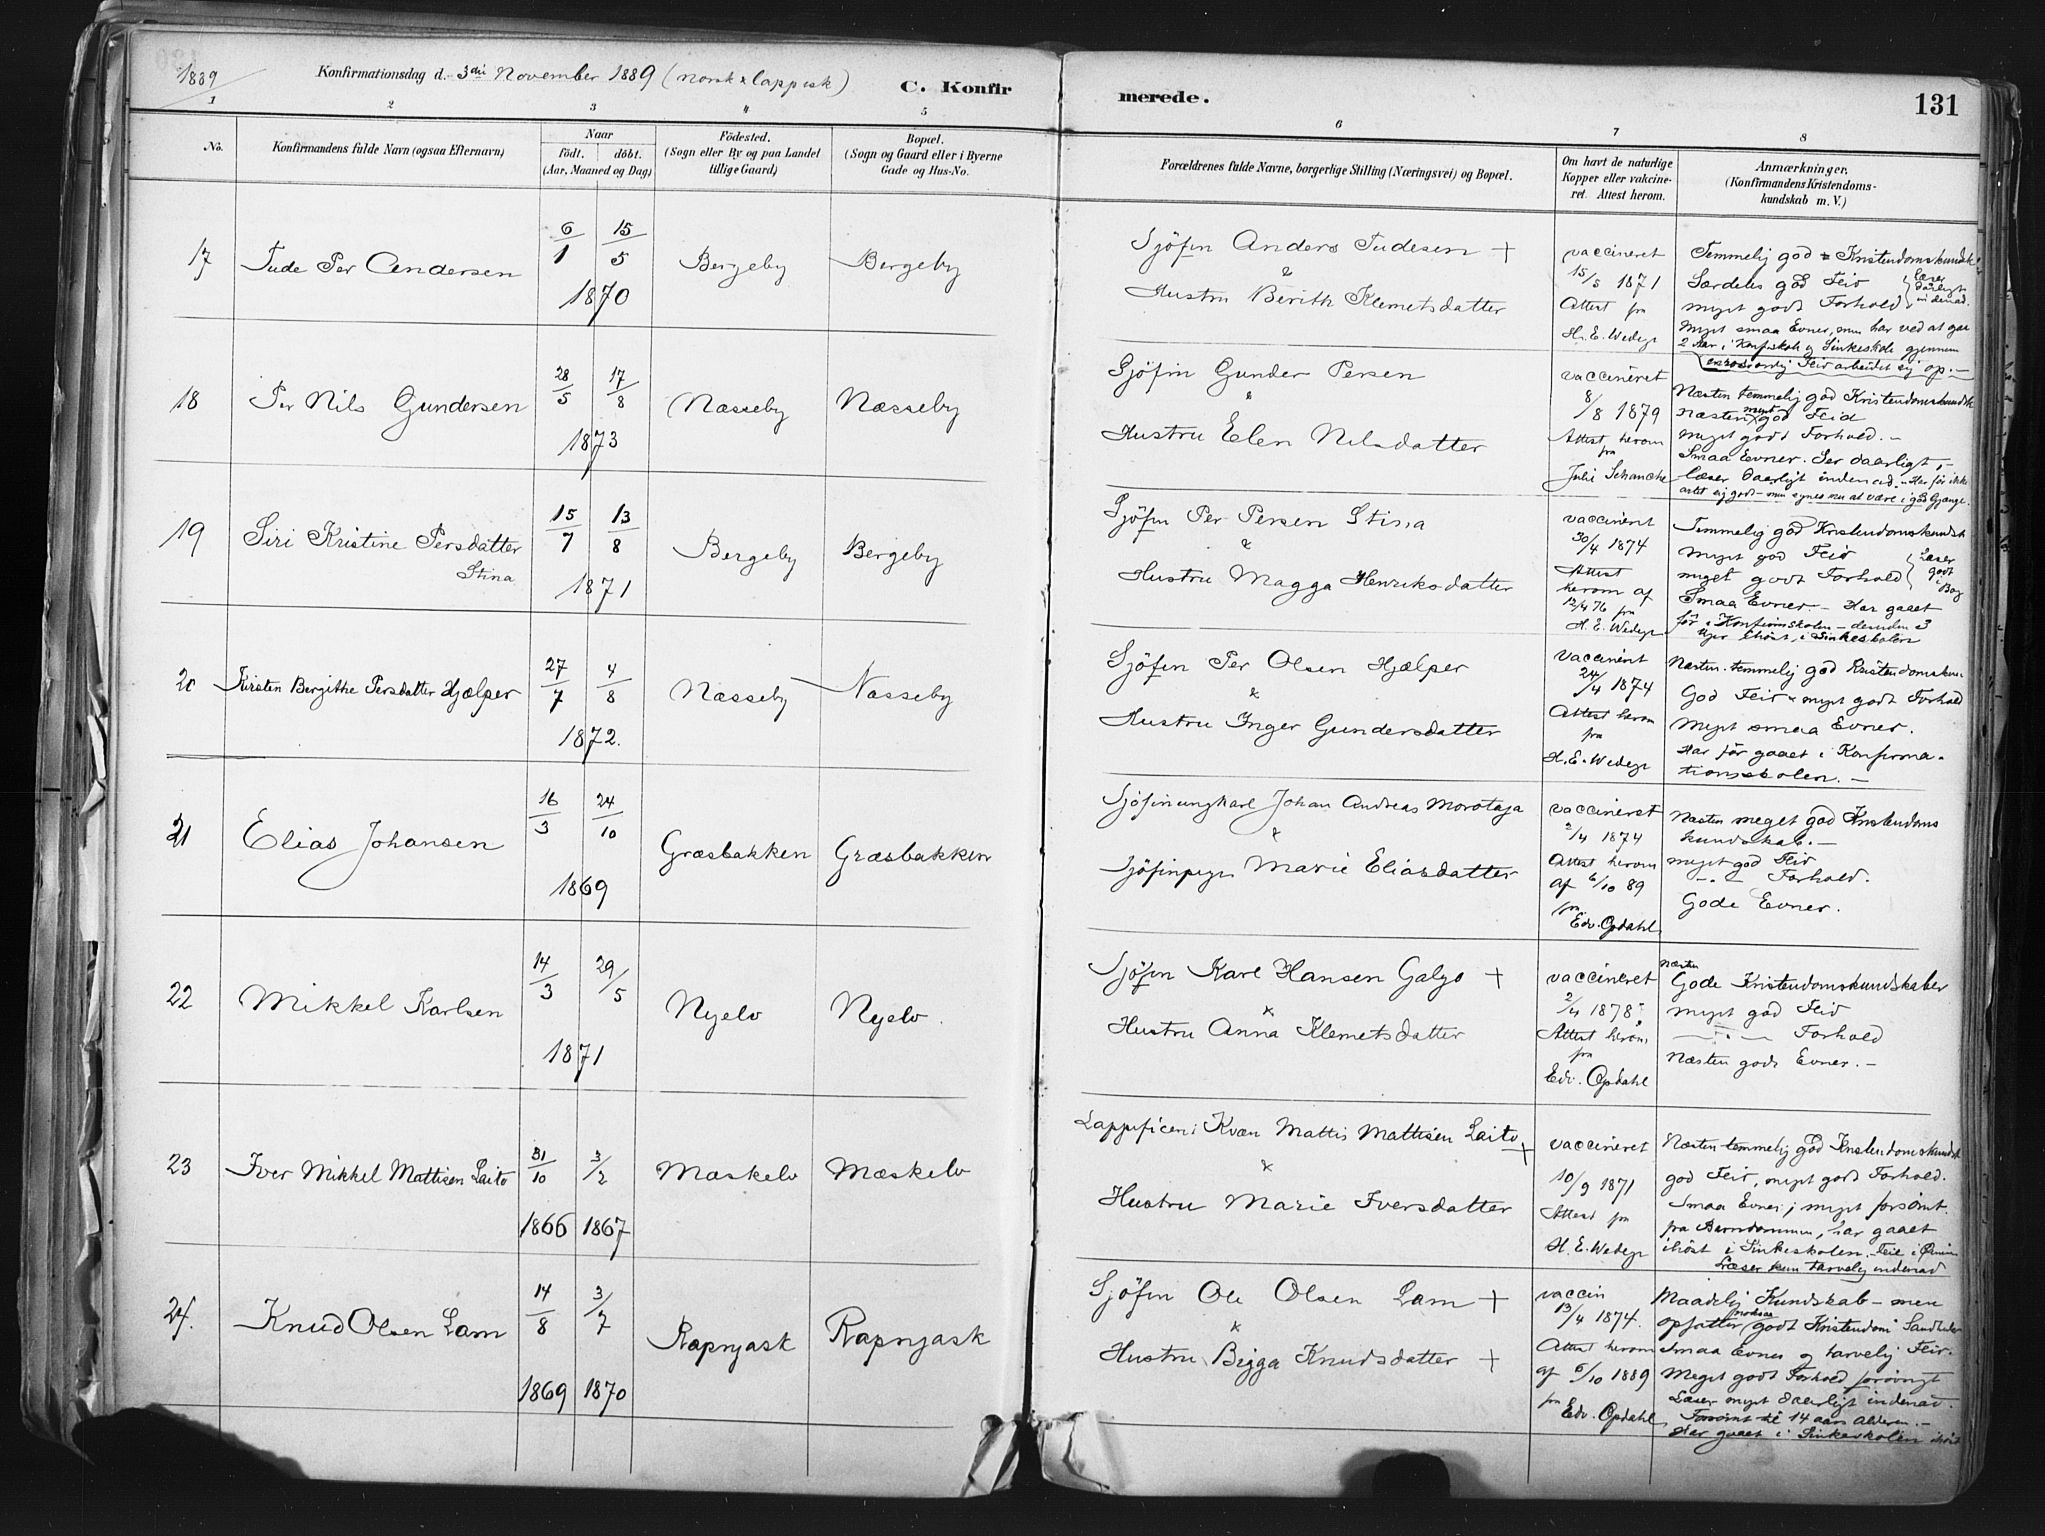 1889
Konfirmationsdag d. 3die November 1889 (norsk & lappisk)
C. Konfirmerede.
131
1 2 3 4 5 6 7 8
No.
Konfirmandens fulde Navn (ogsaa Efternavn)
Naar
födt. döbt.
(Aar, Maaned og Dag)
Födested.
(Sogn eller By og paa Landet
tillige Gaard)
Bopæl.
(Sogn og Gaard eller i Byerne
Gade og Hus-No.
Forældrenes fulde Navne, borgerlige Stilling (Næringsvei) og Bopæl.
Om havt de naturlige
Kopper eller vakcine-
ret. Attest herom.
Anmærkninger.
(Konfirmandens Kristendoms-
kundskab m. V.)
17
Tude Per Andersen
6/1 15/5
1870
Bergeby
Bergeby
Sjöfin Anders Tudesen +
&
Hustru Berith Klemetsdatter
vaccineret
15/5 1871
Attest fra
H. E. Wedege
Temmelig god Kristendomskundsk
Særdeles god Flid
meget godt Forhold
Læser daarligt indenad.
Meget smaa Evner, men har ved at gaa
2 Aar i Konf.skole og Sinkeskole gjennem
Flid arbeidet sig op. –
18
Per Nils Gundersen
28/5 17/8
1873
Næsseby
Næsseby
Sjöfin Gunder Persen
&
Hustru Elen Nilsdatter
vaccineret
8/8 1879
Attest herom
fra
Julie Schanche
Næsten temmelig god Kristendomskundsk
næsten meget god Flid
meget godt Forhold. –
Smaa Evner. Ser daarligt, –
læser daarligt indenad. – Har før ikke
artet sig godt – men synes nu at være i god Gjænge.
19
Siri Kristine Persdatter
Stina
15/7 13/8
1871
Bergeby
Bergeby
Sjöfin Per Persen Stina
&
Hustru Magga Henriksdatter
vaccineret
30/4 1874
Attest
herom af
12/4 76 fra
H. E. Wedege
Temmelig god Kristendomskundsk
meget god Flid
meget godt Forhold
Læser godt i Bog
Smaa Evner. – Har gaaet
før i Konfirmskolen – desuden 3
Uger ihöst i Sinkeskolen
20
Kirsten Bergithe Persdatter Hjælper
27/7 4/8
1872.
Næsseby
Næsseby
Sjöfin Per Olsen Hjælper
&
Hustru Inger Gundersdatter
vaccinert
24/4 1874
Attest herom
fra
H. E. Wedege
Næsten temmelig god Kristendomskun
God Flid & meget godt Forhold
meget smaa Evner.
Har før gaaet i Konfirma-
tionsskolen. –
21
Elias Johansen
16/3 24/10
1869
Græsbakken
Græsbakken
Sjöfinungkarl Johan Andreas Morotaja
&
Sjöfinpige Marie Eliasdatter
vaccineret
2/4 1874
Attest herom
af 6/10 89
fra
Edv. Opdahl
Næsten meget god Kristendoms
kundskab. –
meget god Flid
– " – Forhold.
Gode Evner.
22
Mikkel Karlsen
14/3 29/5
1871
Nyelv
Nyelv.
Sjöfin Karl Hansen Galgo +
&
Hustru Anna Klemetsdatter
vaccineret
2/4 1878
Attest herom
fra
Edv. Opdahl
Næsten
Gode Kristendomskundskaber
meget god Flid
– " – Forhold
Næsten gode Evner. –
23
Iver Mikkel Mattisen Laito
31/10 3/2
1866 1867
Mæskelv
Mæskelv
Kvæn Mattis Mattisen Laito +
&
Hustru Marie Iversdatter
vaccineret
10/9 1871
Attest fra
H. E. Wedege
Næsten temmelig god Kristendomskundsk
god Flid, meget godt Forhold.
Smaa Evner; meget forsömt
fra Barndommen, har gaaet
ihöst i Sinkeskolen.
Læser kun tarvelig indenad
24.
Knud Olsen Lam
14/8 3/7
1869 1870
Rapnjask
Rapnjask
Sjöfin Ole Olsen Lam +
&
Hustru Bigga Knudsdatter +
vaccin
13/4 1874.
Attest herom
af 6/10 1889
fra
Edv. Opdahl
Maadelig Kundskab – men
opfatter godt Kristendoms Sandheder
Smaa Evner og tarvelig Flid.
Meget godt Forhold forövrigt
Læser meget daarligt indenad.
Forsömt til 14 aars alderen. –
Har gaaet i Sinkeskolen ihöst